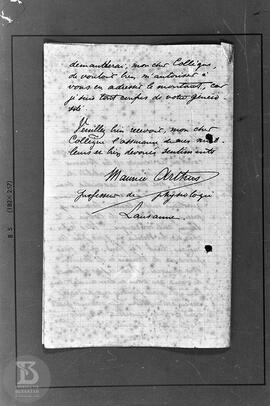 demanderai, mon cher Collègue,
de vouloir bien m'autoriser à
vous en adresser le montant, car
je suis tout confus de votre généro-
sité.
Veuillez bien recevoir, mon cher
Collègue l'assurance de mes meil-
leurs et bien dévoués sentiments
Maurice Arthus
professeur de physiologie
Lausanne